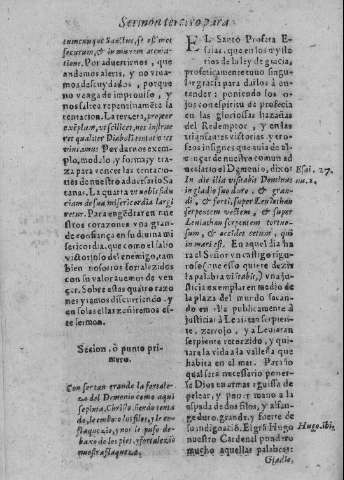 Sermon tercero para
tiumcunque Sanctus, se esset
secutum, & in murem
tione. Por advertirnos, que
andemos alerta, y no viva-
mos descuydados, porque
no venga de improuiso, y
nos saltee repentinamẽte la
tentacion. La tercera, propter
exẽplum, vt scilicet, nos instrue
ret qualiter Diaboli tentationes
vincamus Por darnos exem-
plo, modelo y forma, y tra-
za para vencer las tentacio-
nes de nuestro aduersario Sa
tanas. La quarta vt nobis fidu
ciam de sua misericordia largi
retur. Para engẽdrar en nue
stros corazones vna gran-
de confiança en su diuina mi
sericordia. que como el salio
victorioso del enemigo, tam
bien nosotros fortalezidos
con su valor auemos de ven
cer. Sobre estas quatro razo
nes yremos discurriendo y
en solas ellas ceñiremos es-
te sermon.
Secion, ò punto pri-
mero.
Con ser tan grande la fortale-
za del Demonio como aqui
se pinta, Christo siendo tenta
do, le embotò los filos, y le en-
flaquezio, y nos le puso de-
baxo de los pies, y fortalezio
nuestra flaqueza.
EL Santo Profeta E-
saias, que en los myste
rios de la ley de gracia,
profeticamente tuuo singu-
lar gracia para darlos à en-
tender: poniendo los o-
jos con espiritu de profecia
en las gloriosas hazañas
del Redemptor, y en las
triunfantes victorias, y tro-
feos insignes que auia de al-
cançar de nuestro comun ad
uersario el Demonio, dixo:
Esai. 27.
In die illa visitabit Dominus
nu. 1.
in gladio suo duro, & gran-
di, & forti, super Leuiathan
serpentem vectem, & super
Leuiathan serpentem tortuo-
sum, & occidet cetum, qui
in mari est. En aquel dia ha
ra el Señor vn castigo rigu-
roso (que esso quiere dezir
la palabra visitabit,) vna ju
sticia exemplar en medio de
la plaza del mundo sacan-
do en ella publicamente à
justiciar à Leuiatan serpien-
te, zerrojo, y a Leuiatan
serpiente retorzido, y qui-
tara la vida a la vallena que
habita en el mar. Para lo
qual serà necessario poner-
se Dios en armas a guisa de
pelear, y poner mano a la
espada de dos filos, y asfan-
ge duro, grande, y fuerte de
su indignaciõ. El grã Hugo
Hugo. ibi,
nuestro Cardenal pondero
mucho aquellas palabras:
Gladio